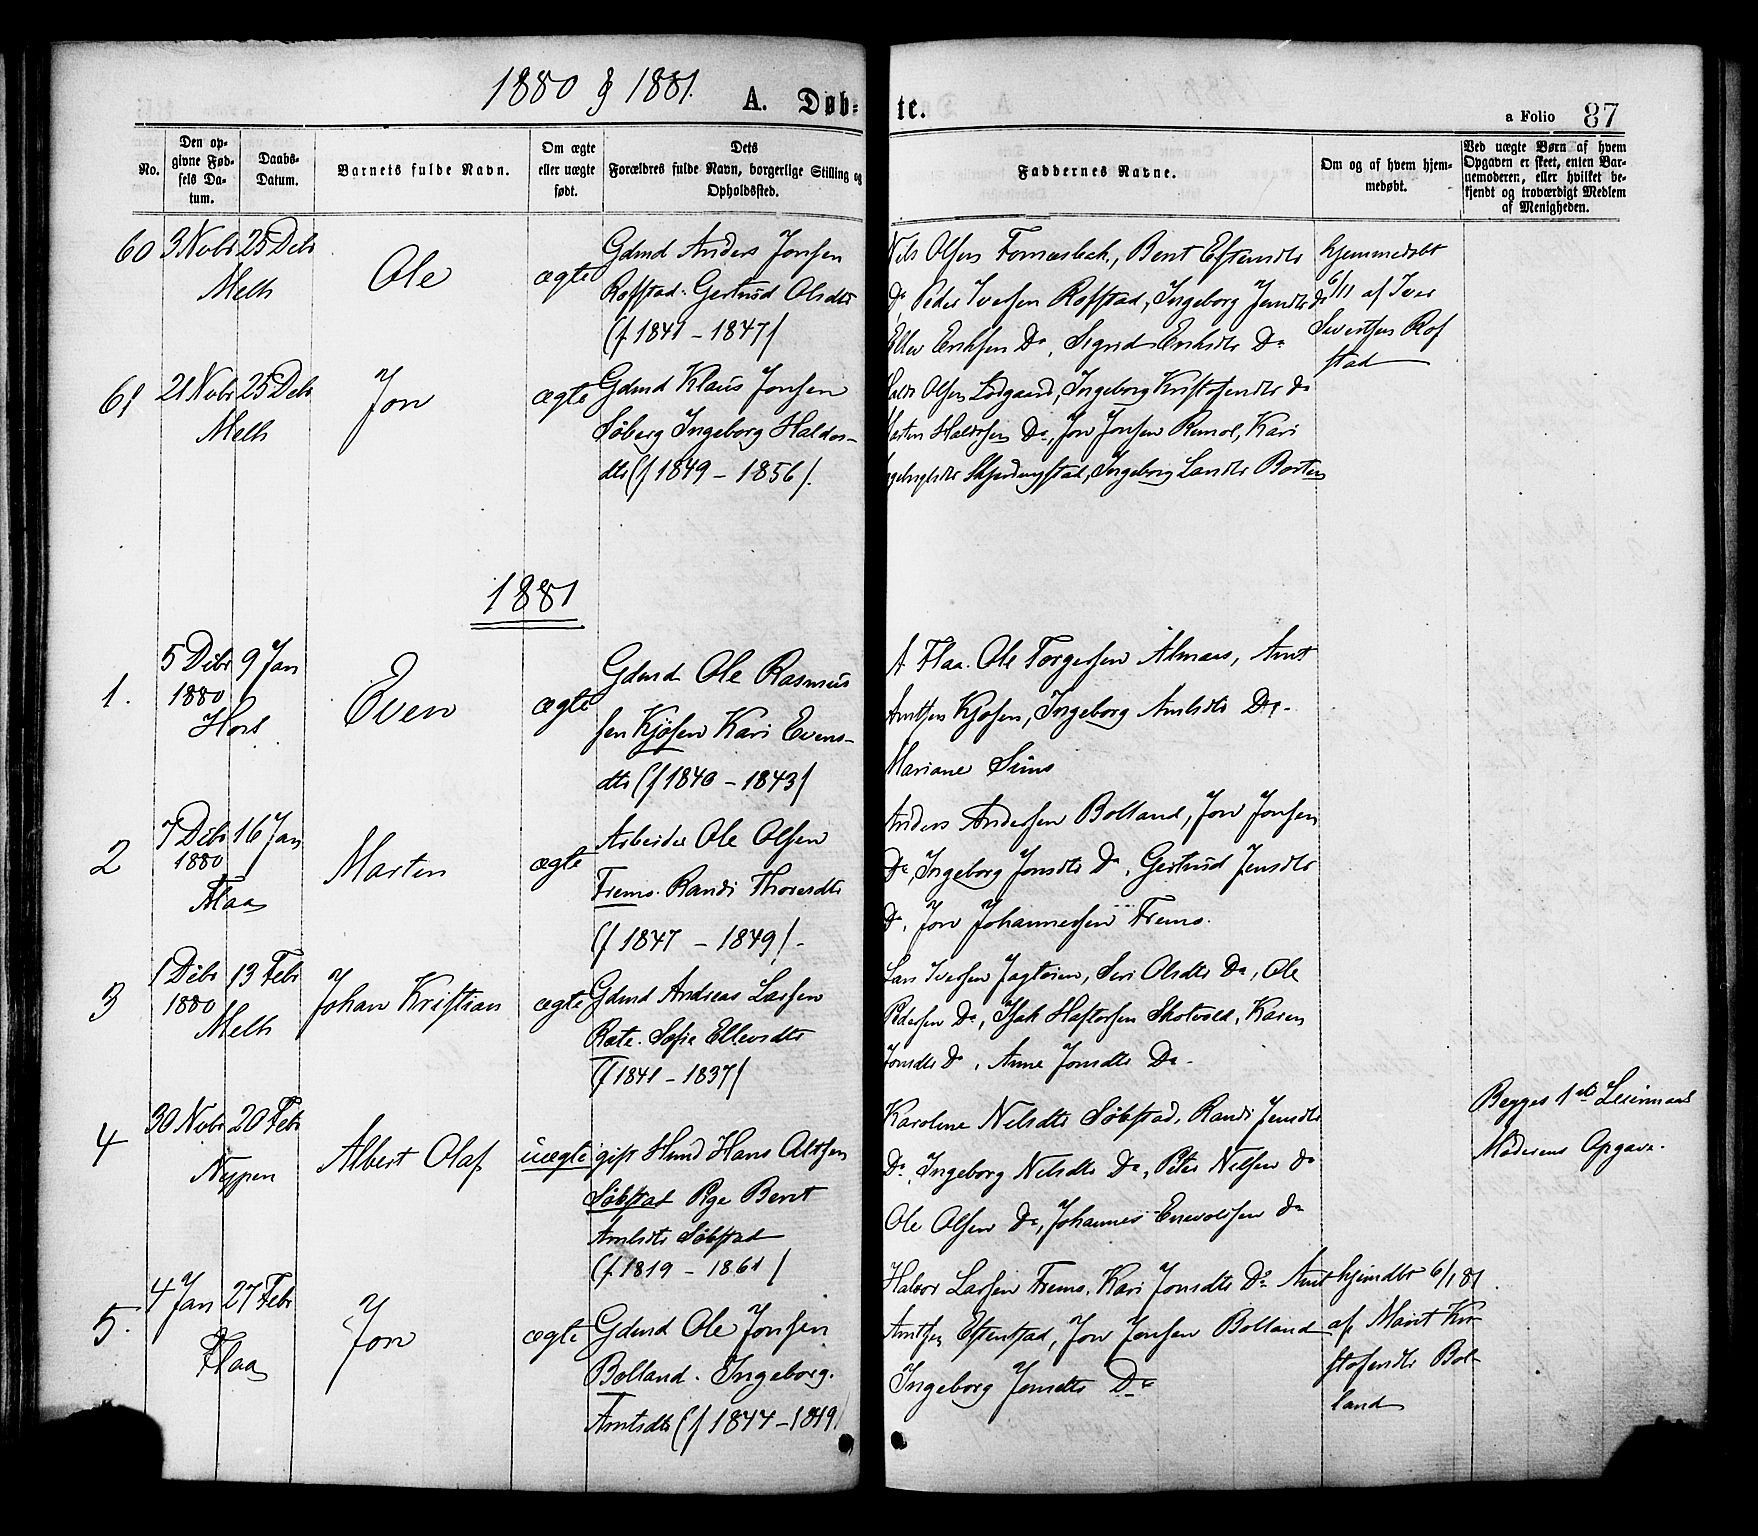 1880 & 1881.
A. Døb-
te.
a Folio 87
No.
Den op-
givne Fød-
sels Da-
tum.
Daabs-
Datum.
Barnets fulde Navn.
Om ægte
eller uægte
født.
Dets
Forældres fulde Navn, borgerlige Stilling og
Opholdssted.
Faddernes Navne.
Om og af hvem hjem-
medøbt.
Ved uægte Børn af hvem
Opgaven er skeet, enten Bar-
nemoderen, eller hvilket be-
kjendt og troværdigt Medlem
af Menigheden.
60 3 Nobr 25 Debr
Melh
Ole
ægte
Gdmd Anders Jonsen
Rofstad. Gertrud Olsdtr
(f. 1841 – 1847)
Nils Olsen Fornæsbak, Bent Estensdtr
Do, Peder Iversen Rofstad, Ingeborg Jensdtr Do
Ellev Eriksen Do, Sigrid Eriksdtr Do
hjemmedøbt
6/11 af Iver
Sivertsen Rof
stad
61 21 Nobr 25 Debr
Melh
Jon
ægte
Gdmd Klaus Jonsen
Søberg Ingeborg Haldos-
dtr (f 1849 – 1856).
Haldo Olsen Lodgaard, Ingeborg Kristofersdtr do
Marten Haldosen Do, Jon Jonsen Rimol, Kari
Ingebrigtsdtr Skjerdingstad, Ingeborg Larsdtr Borten
1881
1. 5 Debr 9 Jan
1880
Horg
Even
ægte
Gdmd Ole Rasmus
sen Kjøsen Kari Evens-
dtr (f 1840 – 1843)
A Flaa. Ole Torgersen Almaas, Arnt
Arntsen Kjøsen, Ingeborg Arntsdtr Do.
Mariane Simo
2 7 Debr 16 Jan
1880
Flaa
Marten
ægte
Arbeider Ole Olsen
Fremo. Randi Thoresdtr
(f 1847 – 1849).
Anders Andersen Bolland, Jon Jonsen
Do, Ingeborg Jonsdtr Do, Gertrud Jensdtr
Do, Jon Johannessen Fremo.
3 1 Debr 13 Febr
1880
Melh
Johan Kristian
ægte
Gdmd Andreas Larsen
Rate. Sofie Ellevsdtr
(f 1841 – 1837)
Lars Iversen Jagtøien, Siri Olsdtr Do, Ole
Pedersen Do, Isak Haftorsen Skotvold, Karen
Jonsdtr Do, Anne Jonsdtr Do.
4 30 Nobr 20 Febr
Nypen
Albert Olaf
uægte
gift Hmd Hans Altsen
Søbstad Pge Berit
Arntsdtr Søbstad
(f. 1819 – 1861)
Karoline Nilsdtr Søbstad, Randi Jensdtr
Do, Ingeborg Nilsdtr Do, Peter Nilsen do
Ole Olsen Do, Johannes Enevoldsen do
Begges 1ste Leiermaal
Moderens Opgave.
5. 4 Jan 27 Febr
Flaa
Jon
ægte
Gdmd Ole Jonsen
Bolland. Ingeborg.
Arntsdtr (f 1844 – 1849)
Halvor Larsen Fremo, Kari Jonsdtr Do Arnt
Arntsen Estenstad, Jon Jonsen Bolland
Ingeborg Jonsdtr Do
hjemdbt 6/1 81.
af Marit Kri
stofersdtr Bol-
land